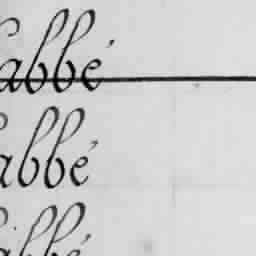 abbé
abbé
abbé